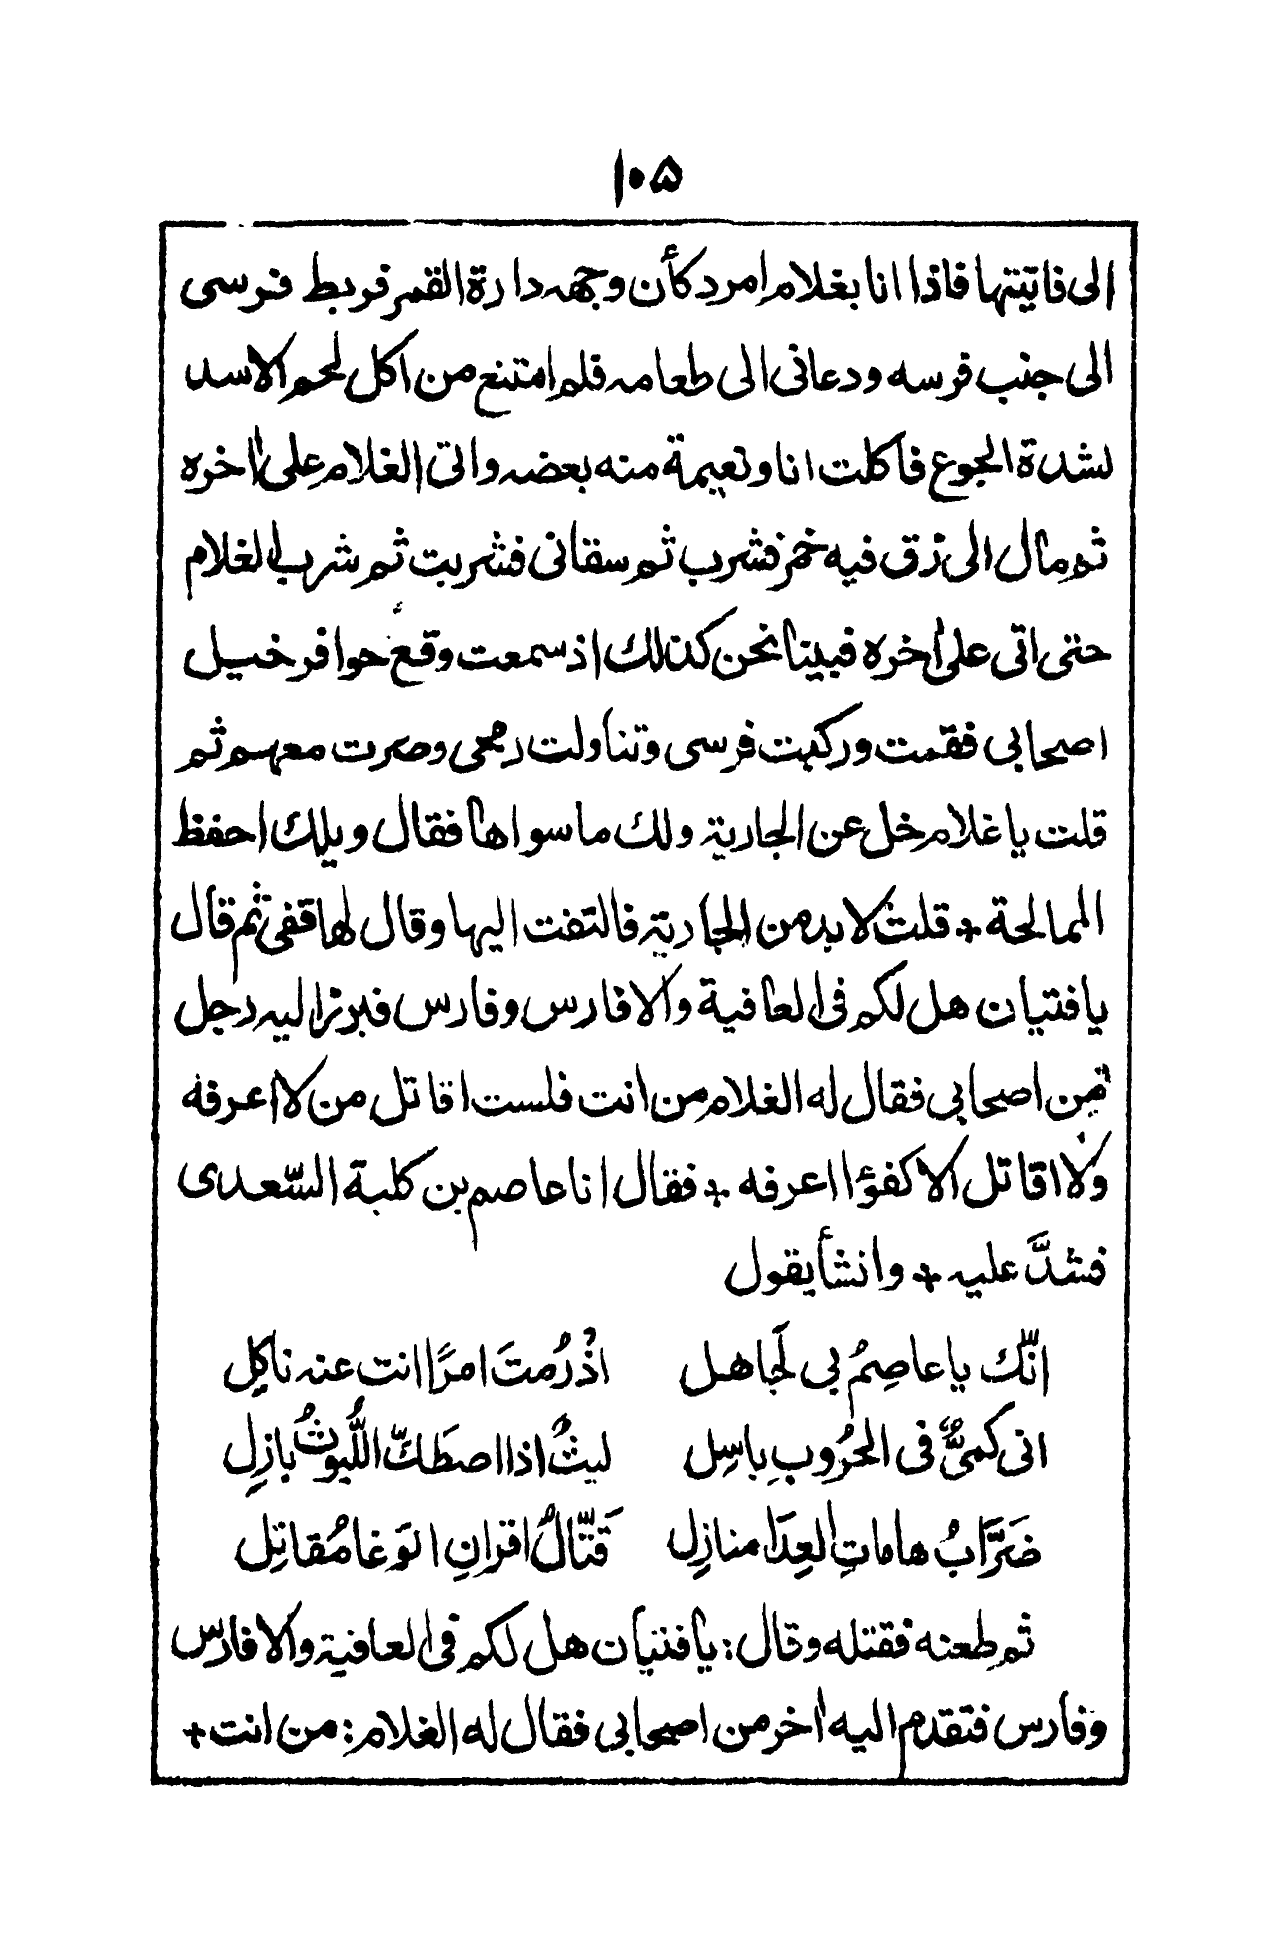 ۱۰۵
الى فاتيتها فاذا انا بغلام امرد كأن وجهه دارة القمر فربط فرسى
الى جنب فرسه ودعانى الى طعامه فلم امتنع من اكل لحم الاسد
لشدة الجوع فاكلت انا ونعيمة منه بعضه واتى الغلام على اخره
ثم مال الى زق فيه خمر فشرب ثم سقانى فشربت ثم شرب الغلام
حتى اتى على اخره فبينا نحن كذلك اذ سمعت وقع حوافر خيل
اصحابى فقمت وركبت فرسى وتناولت رمحى وصرت معهم ثم
قلت يا غلام خل عن الجارية ولك ما سواها فقال ويلك احفظ
الممالحة + قلت لا بد من الجارية فالتفت اليها وقال لها قفى ثم قال
يا فتيان هل لكم فى العافية والا فارس وفارس فبرز اليه رجل
من اصحابى فقال له الغلام من انت فلست اقاتل من لا اعرفه
ولا اقاتل الا كفؤا اعرفه + فقال انا عاصم بن كلبة السّعدى
فشدَّ عليه + وانشأ يقول
انّك يا عاصِمُ بى لَجاهل اذْ رُمتَ امرًا انت عنه ناكِل
انى كمىٌّ فى الحرُوبِ باسِل ليثٌ اذا اصطَكّ اللُّيوثُ بازِل
ضَرَّابُ هاماتِ العِدَا منازِل قَتّالُ اقرانِ الوَغا مُقاتِل
ثم طعنه فقتله وقال: يا فتيان هل لكم فى العافية والا فارس
وفارس فتقدم اليه اخر من اصحابى فقال له الغلام: من انت +